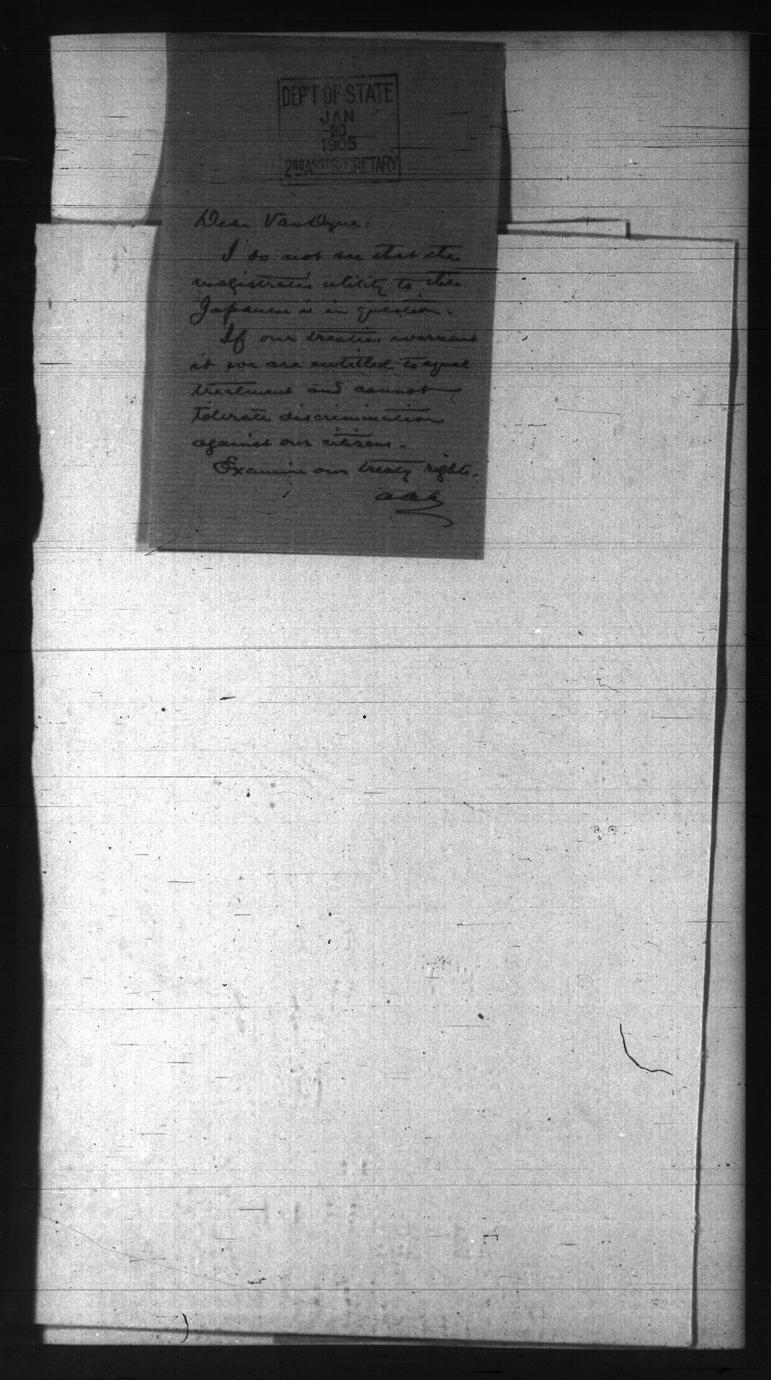 DEP'T OF STATE
JAN
20
1905
2ND ASS'T SECRETARY
Dear VanDyne:
I do not see that the
magistrate's utility to the
Japanese is in question.
If our treaties warrant
it we are entitled to equal
treatment and cannot
tolerate discrimination
against our citizens.
Examine our treaty rights.
AAA